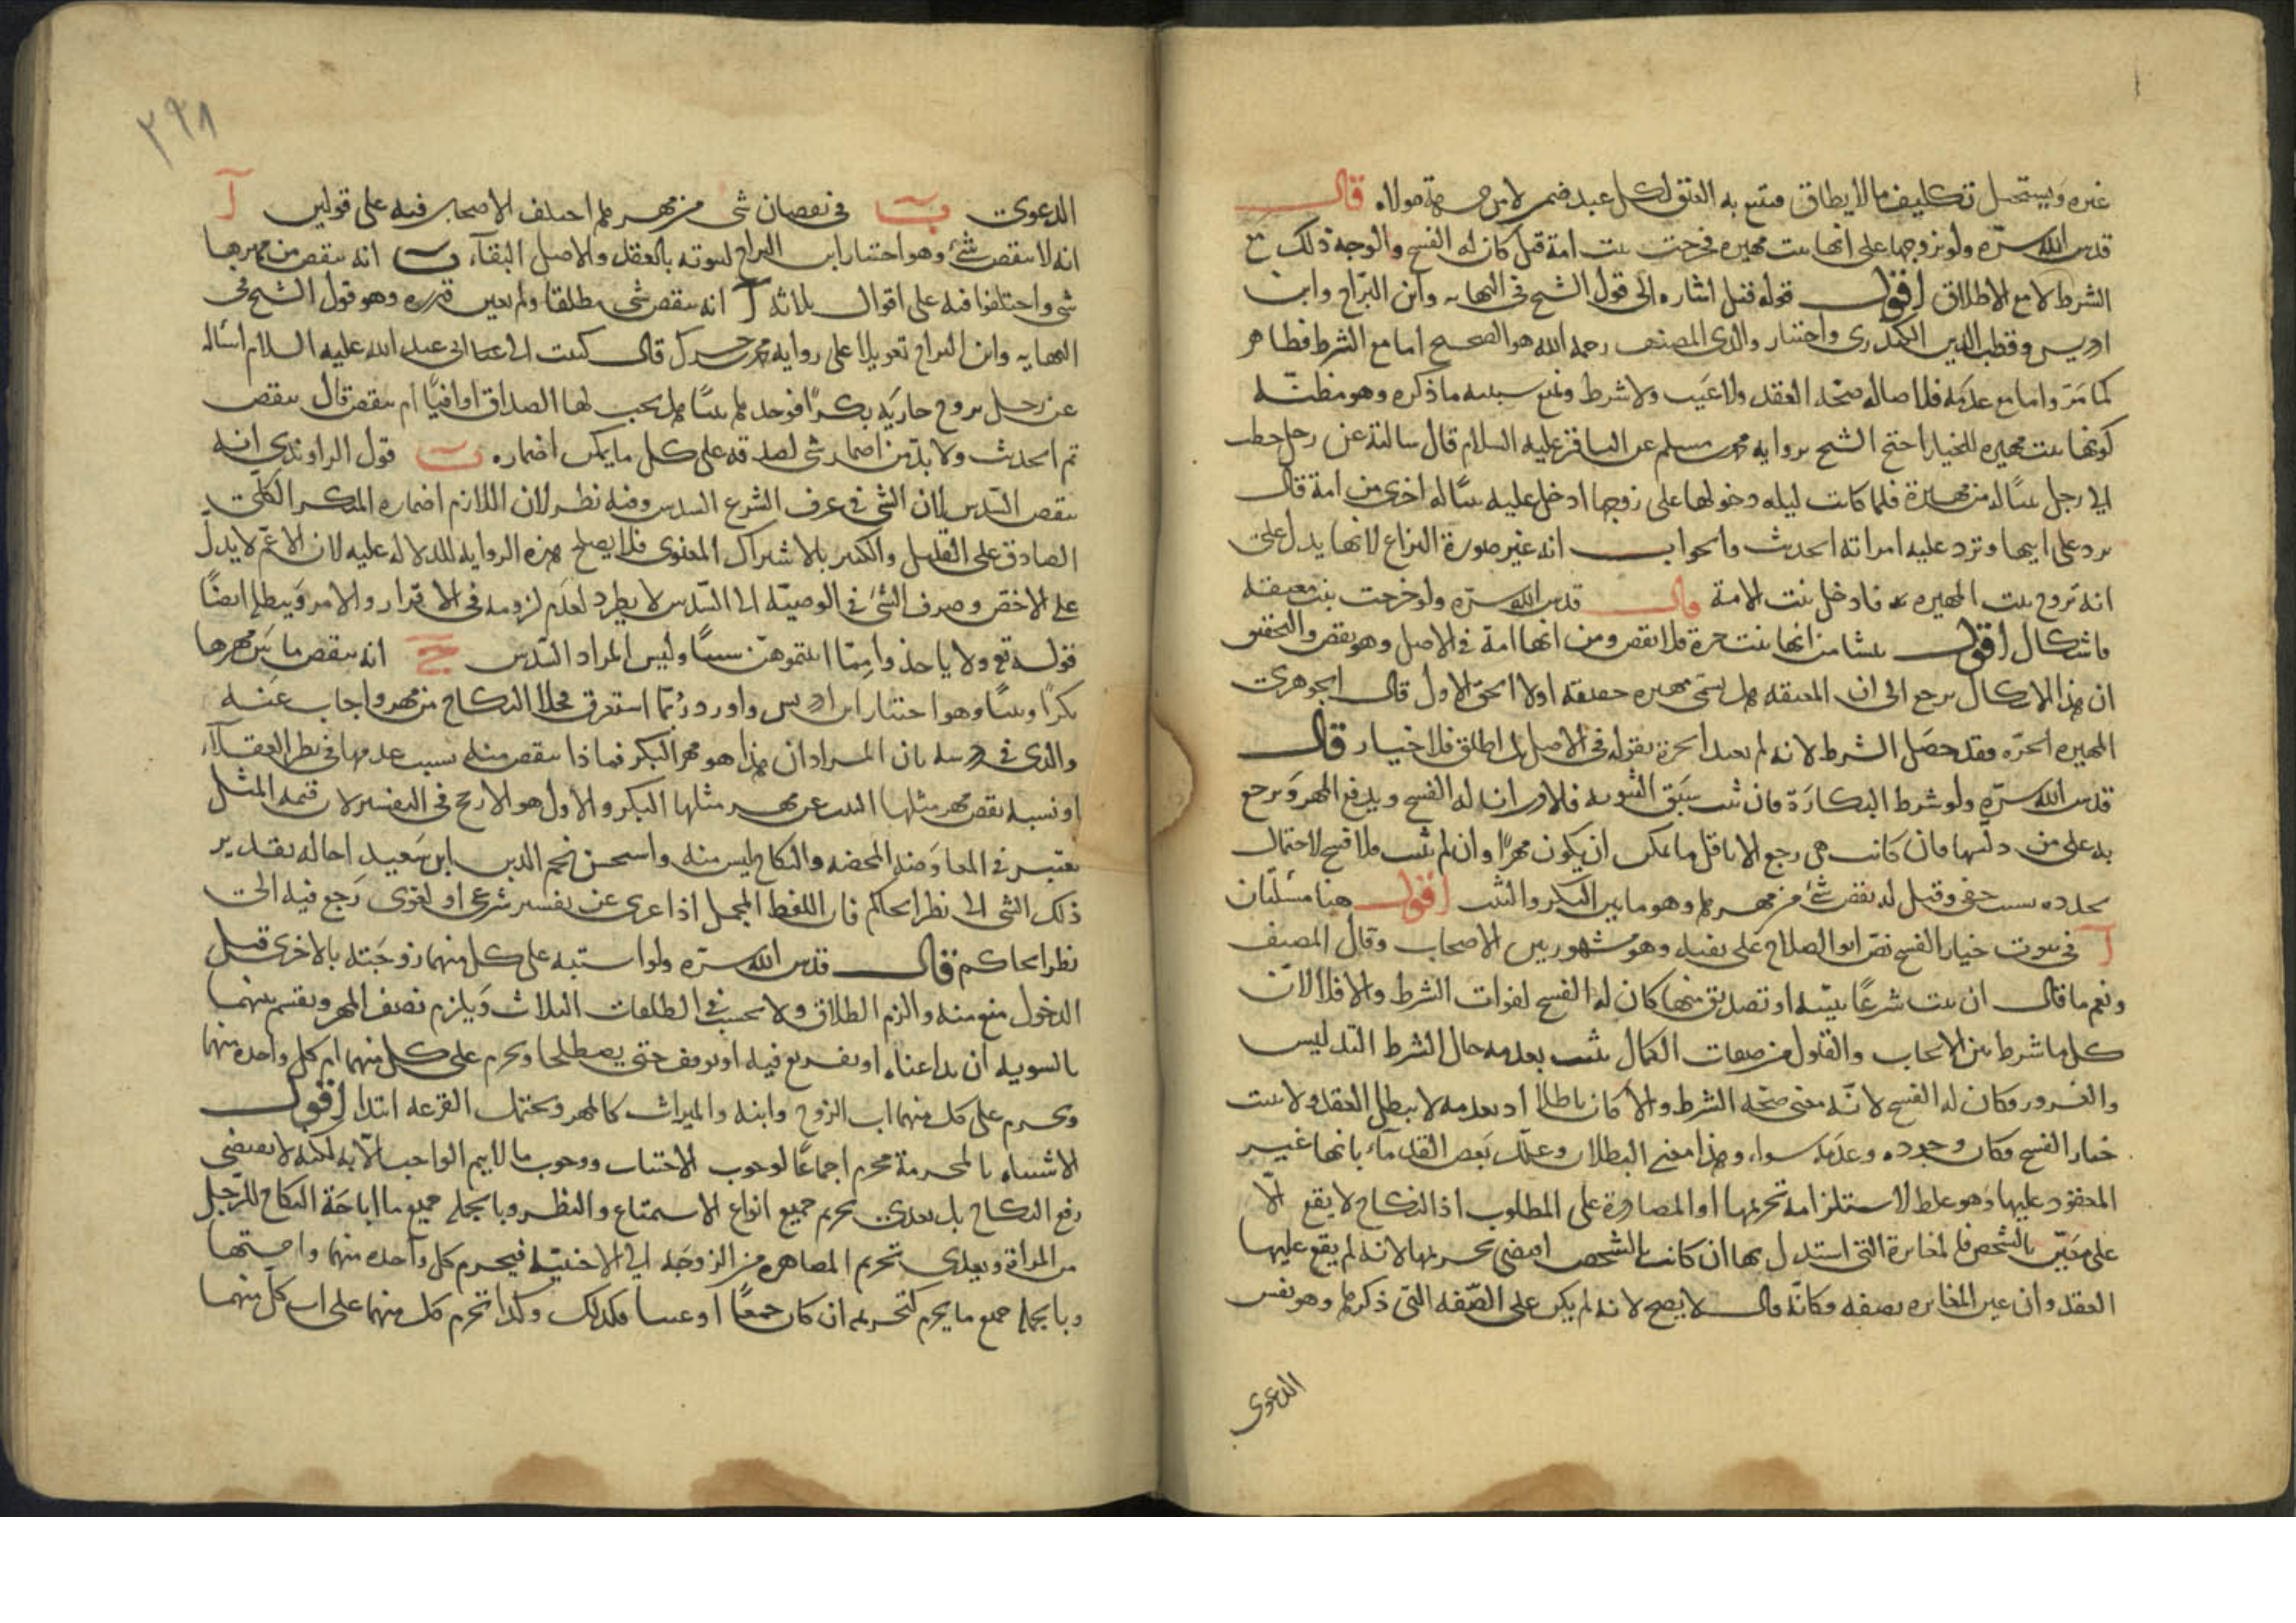 غيره ويستحيل تكليف ما لا يطاق فيتبع به العتق لكل عبد ضمن لا من جهة مولاه قال
قدس الله سره ولو تزوجها على انها بنت مهيرة فخرجت بنت امة قيل كان له الفسخ والوجه ذلك مع
الشرط لا مع الاطلاق اقول قوله قيل اشاره الى قول الشيخ في النهايه وابن البراج وابن
ادريس وقطب الدين الكيدري واختيار والدي المصنف رحمه الله هو الصحيح اما مع الشرط فظاهر
كما مر واما مع عدمه فلاصاله صحه العقد ولا عيب ولا شرط ونمنع سببيه ما ذكره وهو مظنه
كونها بنت مهيره للخيار احتج الشيخ بروايه محمد بن مسلم عن الباقر عليه السلام قال سالته عن رجل خطب
الى رجل بنتًا له من مهيرة فلما كانت ليله دخولها على زوجها ادخل عليه بنتًا له اخرى من امة قال
يرد على ابيها وترد عليه امراته الحديث والجواب انه غير صورة النزاع لانها يدل على
انه تزوج بنت المهيره فادخل بنت الامة قال قدس الله سره ولو خرجت بنت معتقه
فاشكال اقول ينشا من انها بنت حرة فلا نقص ومن انها امة في الاصل وهو نقص والتحقيق
ان هذا الاشكال يرجع الى ان المعتقه هل يسمى مهيره حقيقه اولا الحق الاول قال الجوهري
المهيره الحره فقد حصل الشرط لانه لم يقيد الحرة بقوله في الاصل بل اطلق فلا خيار قال
قدس الله سره ولو شرط البكارة فان ثبت سبق الثيوبه فالاقرب ان له الفسخ ويدفع المهر ويرجع
به على من دلسها فان كانت هي رجع الا باقل ما يمكن ان يكون مهرًا وان لم يثبت فلا فسخ لاحتمال
تجدده بسبب خفي وقيل له نقص شئ من مهرها وهو ما بين البكر والثيب اقول هنا مسئلتان
آ في ثبوت خيار الفسخ نص ابو الصلاح على نفيه وهو مشهور بين الاصحاب وقال المصنف
ونعم ما قال ان ثبت شرعًا ببينه او تصديق منها كان له الفسخ لفوات الشرط والا فلا لان
كل ما شرط بين الايجاب والقبول من صفات الكمال يثبت بعدمه حال الشرط التدليس
والغرور وكان له الفسخ لانه معنى صحه الشرط والا كان باطلا اذ بعدمه لا يبطل العقد ولا يثبت
خيار الفسخ فكان وجوده وعدمه سواء وهذا معنى البطلان وعلل بعض القدماء بانها غير
المعقود عليها وهو غلط لاستلزامه تحريمها او المصادرة على المطلوب اذ النكاح لا يقع الا
على معين بالشخص فالمغايرة التي استدل بها ان كانت بالشخص اقتضى تحريمها لانه لم يقع عليها
العقد وان عين المغايره بصفه فكانه قال لا يصح لانه لم يكن على الصفه التي ذكرها وهو نفس
الدعوى
٣٩٨
الدعوى ب في نقصان شى من مهرها اختلف الاصحاب فيه على قولين آ
انه لا ينقص شئ وهو اختيار ابى الصلاح لثبوته بالعقد والاصل البقاء ب انه ينقص من مهرها
شى واختلفوا فيه على اقوال ثلاثه آ انه ينقص شى مطلقا ولم يعين قدره وهو قول الشيخ في
النهايه وابن البراج تعويلا على روايه محمد بن جزك قال كتبت الى ابى عبد الله عليه السلام اساله
عن رجل تزوج جاريه بكرًا فوجدها ثيبًا هل يجب لها الصداق وافيًا ام ينقص قال ينقص
تم الحديث ولا بد من اضمار شى لصدقه على كل ما يمكن اضماره ب قول الراوندي انه
ينقص السدس لان الشى في عرف الشرع السدس وفيه نظر لان اللازم اضماره المنكر الكلى
الصادق على القليل والكثير بالاشتراك المعنوى فلا يصلح هذه الروايه للدلاله عليه لان الاعم لا يدل
على الاخص وصرف الشئ في الوصيه الى السدس لا يطرد لعدم لزومه في الاقرار والامر ويبطله ايضًا
قوله تع ولا ياخذوا مما اتيتموهن شيئًا وليس المراد السدس ج انه ينقص ما بين مهرها
بكرًا وثيبًا وهو اختيار ابن ادريس واورد ربما استغرق فخلا النكاح من مهر واجاب عنه
والدي في درسه بان المراد ان هذا هو مهر البكر فماذا ينقص منه بسبب عدمها في نظر العقلاء
او نسبه نقص مهر مثلها الثيب عن مهر مثلها البكر والاول هو الارجح في التفسير لان قيمه المثل
تعتبر في المعاوضه المحضه والنكاح ليس منه واستحسن نجم الدين ابن سعيد احاله تقدير
ذلك الشى الى نظر الحاكم فان اللفظ المجمل اذا عرى عن تفسير شرعى او لغوى رجع فيه الى
نظر الحاكم قال قدس الله سره ولو اشتبه على كل منهما زوجته بالاخرى قبل
الدخول منع منه والزم الطلاق ولا يحسب في الطلقات الثلاث ويلزم نصف المهر ويقسم بينهما
بالسويه ان تداعتاه او يقرع فيه او يوقف حتى يصطلحا ويحرم على كل منهما ام كل واحده منهما
ويحرم على كل منهما اب الزوج وابنه والميراث كالمهر ويحتمل القرعه ابتدا اقول
الاشتباه بالمحرمة محرم اجماعًا لوجوب الاجتناب ووجوب ما لا يتم الواجب الا به لكنه لا يقتضى
رفع النكاح بل تعدى تحريم جميع انواع الاستمتاع والنظر وبالجمله جميع ما اباحه النكاح للرجل
من المراة وتعدى تحريم المصاهره من الزوجه الى الاجنبيه فيحرم كل واحده منهما وامهتها
وبالجمله جميع ما يحرم كتحريمه ان كان جمعًا او عينا فكذلك وكذا تحرم كل منهما على اب كل منهما